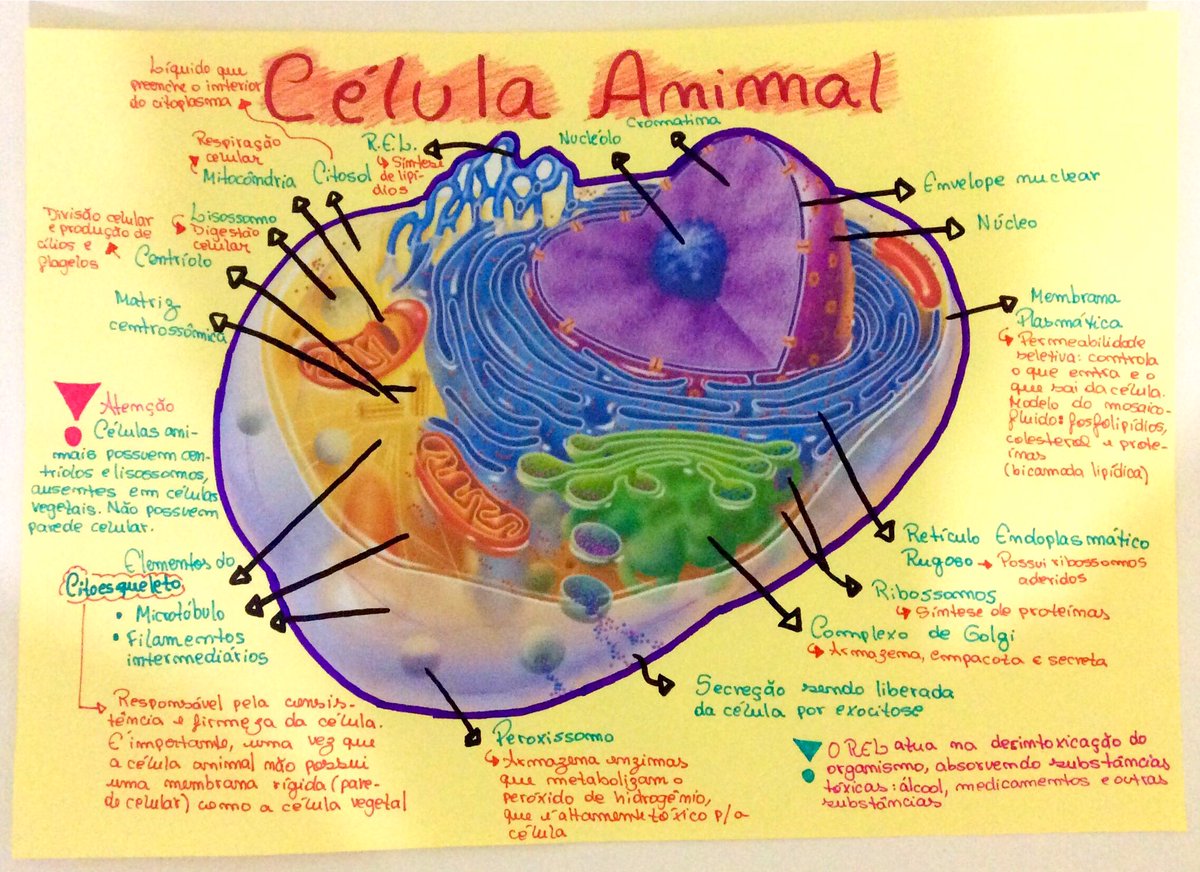 Célula Animal
Líquido que
preenche o interior
do citoplasma
Respiração
celular
Mitocôndria
Citosol
R.E.L.
Síntese
de lipí-
dios
Nucléolo
Cromatina
Divisão celular
e produção de
cílios e
flagelos
Lisossomo
Digestão
celular
Centríolo
Matriz
centrossômica
Envelope nuclear
Núcleo
Membrana
Plasmática
Permeabilidade
seletiva: controla
o que entra e o
que sai da célula.
Modelo do mosaico-
fluido: fosfolipídios,
colesterol e prote-
ínas
(bicamada lipídica)
Atenção
Células ani-
mais possuem cen-
tríolos e lisossomos,
ausentes em células
vegetais. Não possuem
parede celular.
Elementos do
Citoesqueleto
• Microtúbulo
• Filamentos
intermediários
Responsável pela consis-
tência e firmeza da célula.
É importante, uma vez que
a célula animal não possui
uma membrana rígida (pare-
de celular) como a célula vegetal
Retículo Endoplasmático
Rugoso → Possui ribossomos
aderidos
Ribossomos
Síntese de proteínas
Complexo de Golgi
Armazena, empacota e secreta
Secreção sendo liberada
da célula por exocitose
Peroxissomo
Armazena enzimas
que metabolizam o
peróxido de hidrogênio,
que é altamente tóxico p/ a
célula
O REL atua na desintoxicação do
organismo, absorvendo substâncias
tóxicas: álcool, medicamentos e outras
substâncias